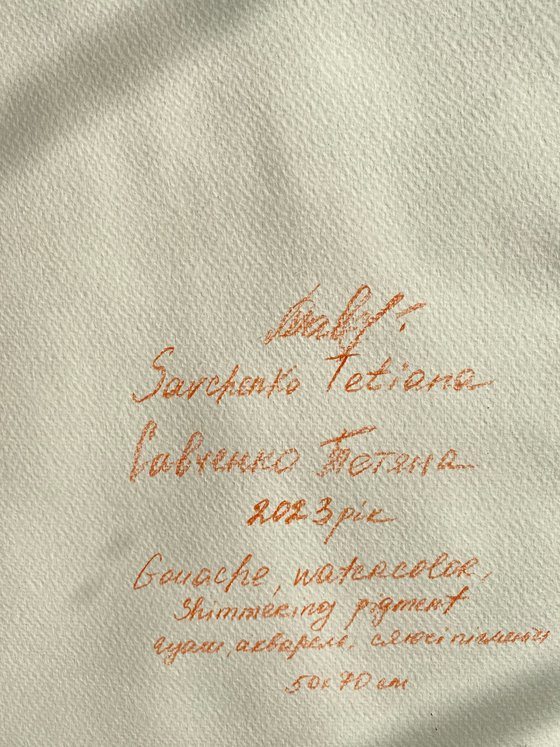 Savchenko Tetiana
Савченко Тетяна
2023 рік
Gouache, watercolor,
Shimmering pigment
гуаш, акварель, сяючі пігменти
50x70 cm